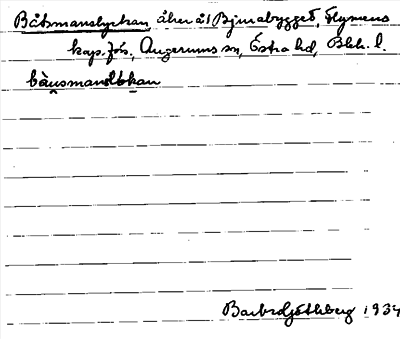 Båtsmanslyckan, åker åt Bjurabygget, Flymens
kap.förs, Augerums sn, Östra hd, Blek. l.
Barbro Ljöthberg 1934